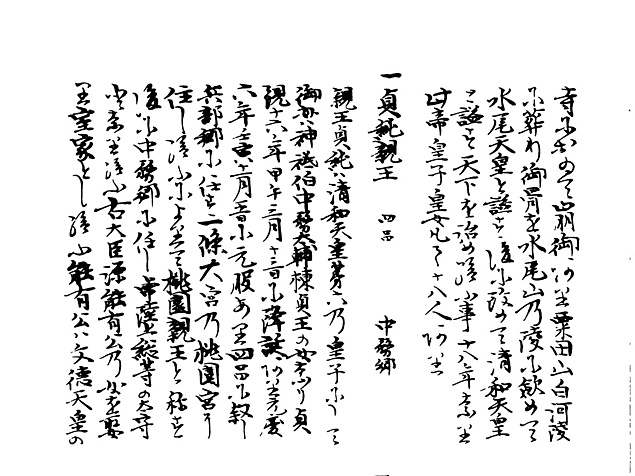 寺におゐて崩御ありて粟田山白河陵
に葬り御骨を水尾山乃陵に歛めて
水尾天皇と謚す後に改めて清和天皇
と謚す天下を治め給ふ事十八年になり
此帝皇子皇女凡て十八人あり
一貞純親王 四品 中務卿
親王貞純ハ清和天皇第六乃皇子にして
御母ハ神祇伯中務大輔棟貞王の女なり貞
観十六年甲午三月十三日に降誕あり元慶
六年壬寅正月吾日に元服あり四品に叙し
兵部卿に任す一條大宮乃桃園宮に
住し給ふによりて桃園親王と称す
後に中務卿に任し常陸上総等の太守
となり給ふ右大臣源能有公乃女を娶
り室家とし給ふ能有公ハ文徳天皇の